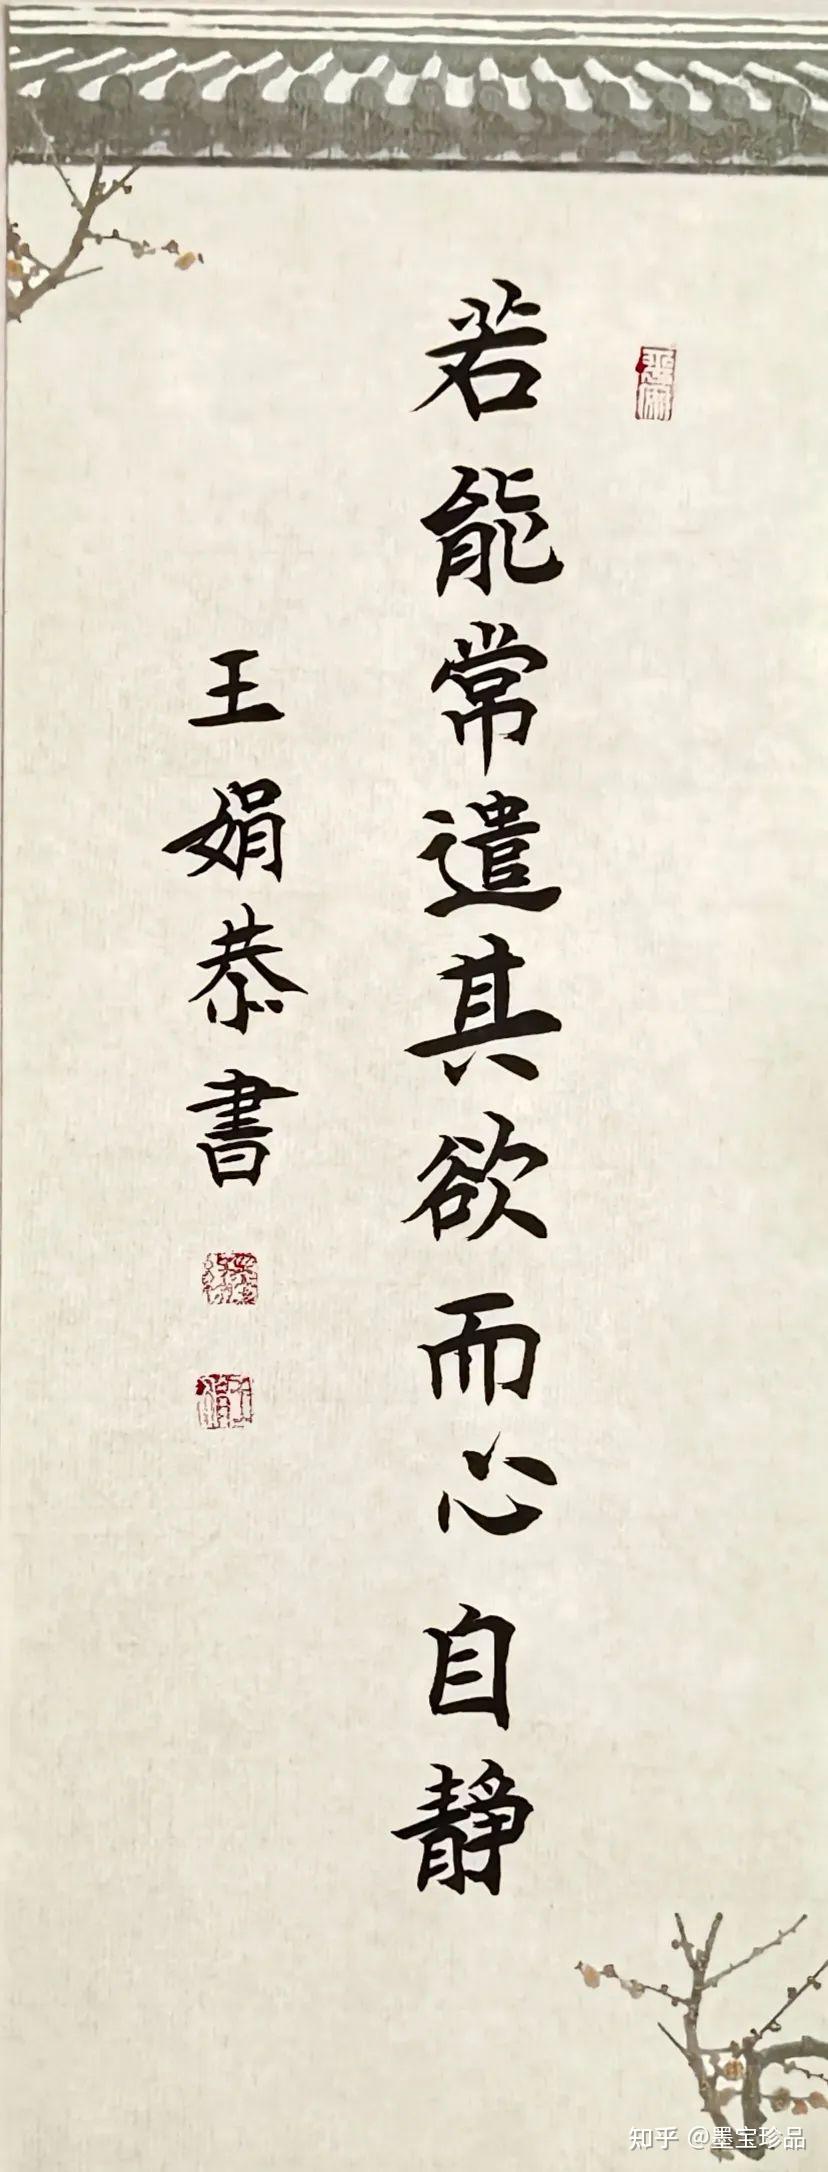 若能常遣其欲而心自靜
王娟恭書
知乎 @墨宝珍品